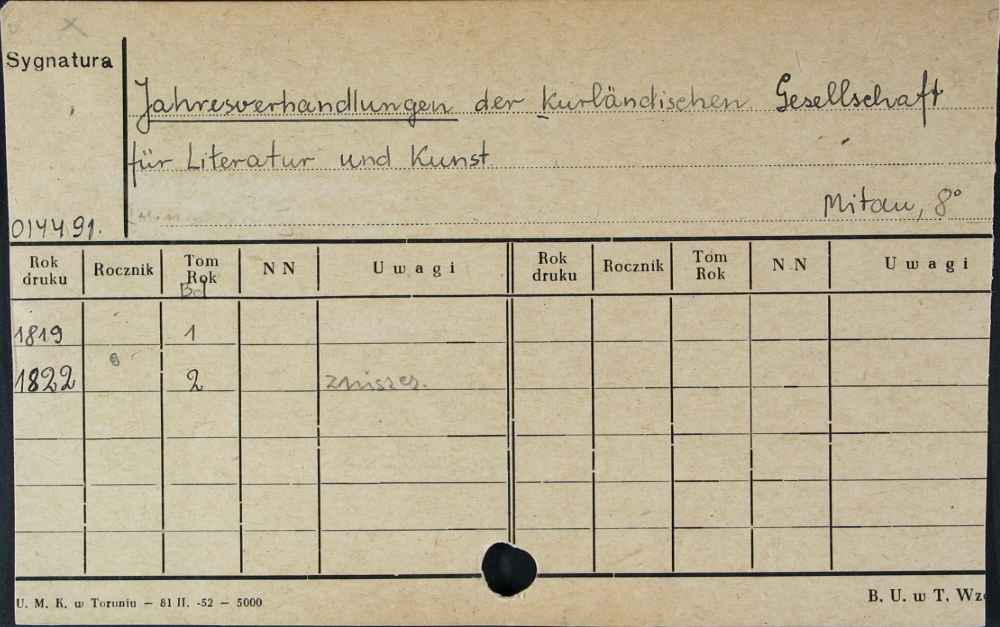 Sygnatura
Jahresverhandlungen der kurländischen Gesellschaft
für Literatur und Kunst
Mitau, 8°
014491.
Rok druku Rocznik Tom Rok NN Uwagi Rok druku Rocznik Tom Rok NN Uwagi
Bd
1819 1
1822 2 zniszcz.
U. M. K. w Toruniu — 81 II. -52 — 5000 B. U. w T.